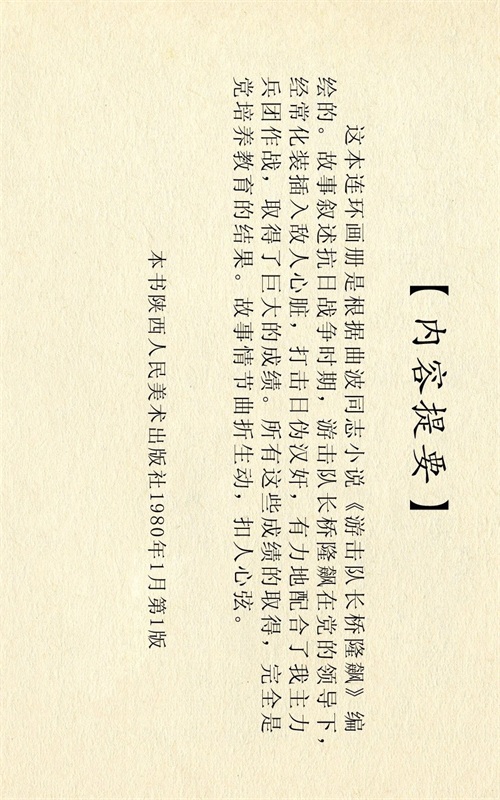 【内容提要】
这本连环画册是根据曲波同志小说《游击队长桥隆飙》编
绘的。故事叙述抗日战争时期，游击队长桥隆飙在党的领导下，
经常化装插入敌人心脏，打击日伪汉奸，有力地配合了我主力
兵团作战，取得了巨大的成绩。所有这些成绩的取得，完全是
党培养教育的结果。故事情节曲折生动，扣人心弦。
本书陕西人民美术出版社1980年1月第1版